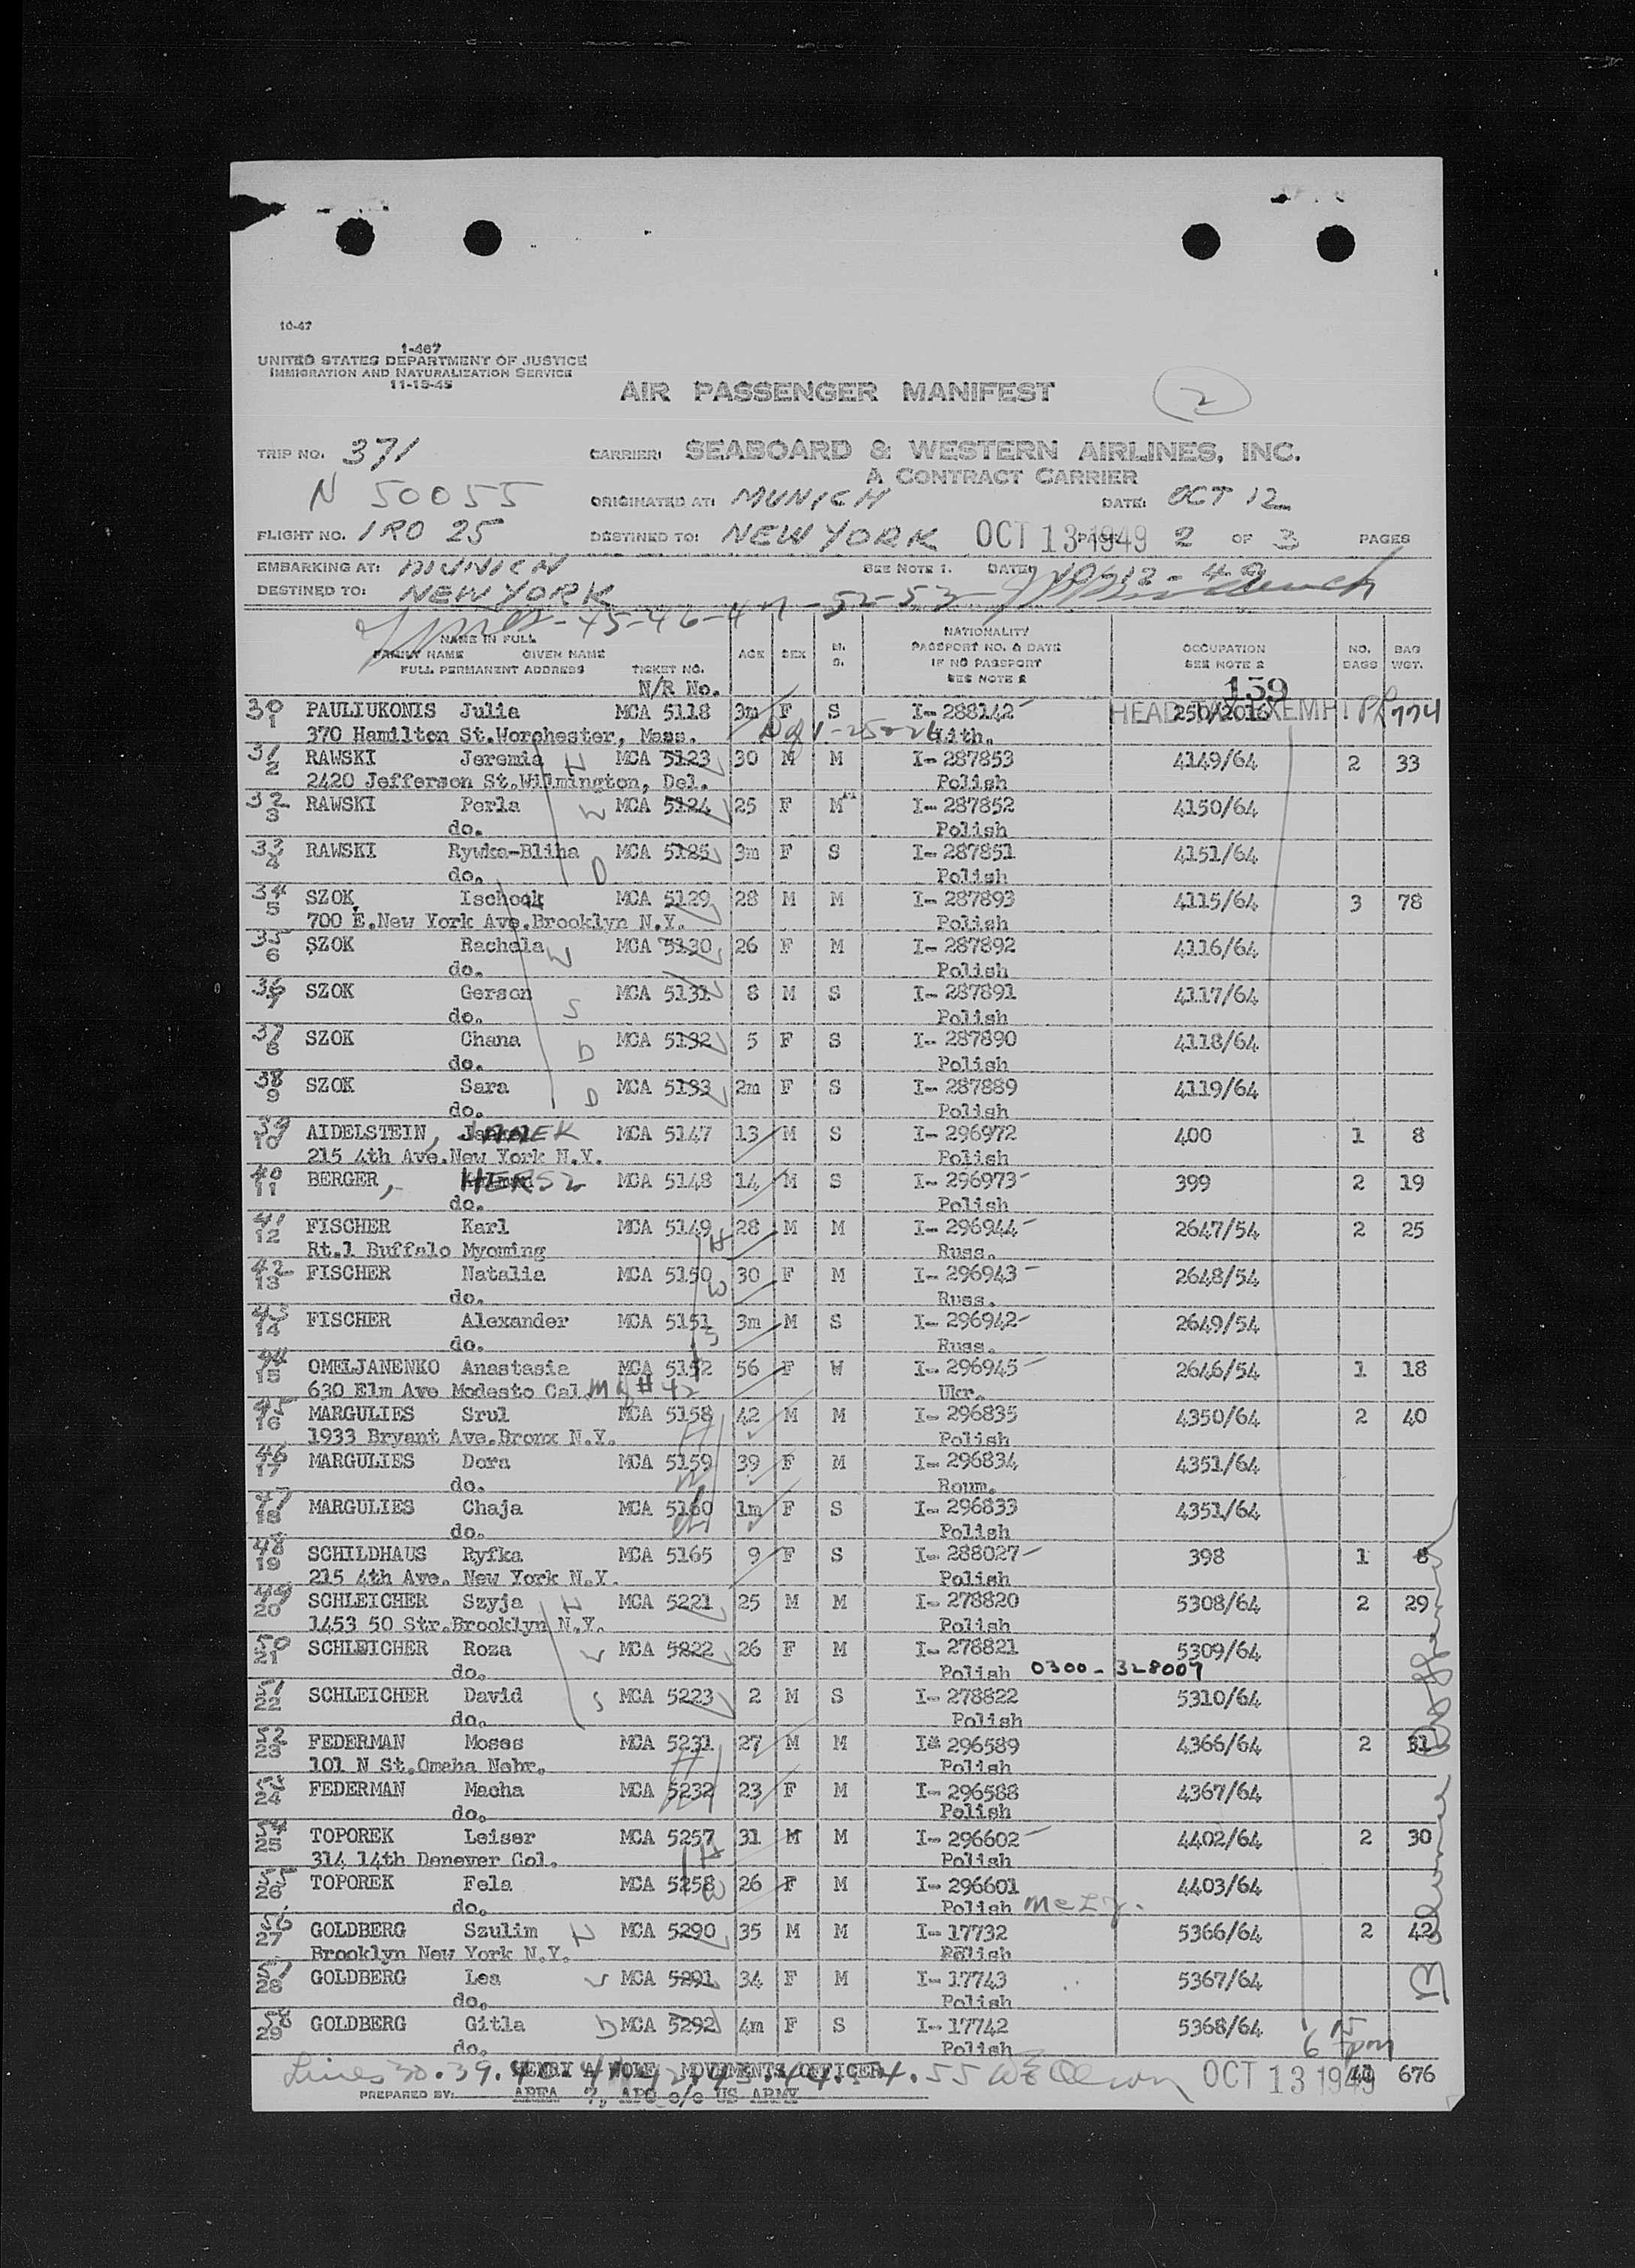 10-47
1-467
UNITED STATES DEPARTMENT OF JUSTICE
IMMIGRATION AND NATURALIZATION SERVICE
11-15-45
AIR PASSENGER MANIFEST
2
TRIP NO. 371
CARRIER: SEABOARD & WESTERN AIRLINES, INC.
A CONTRACT CARRIER
N 50055
ORIGINATED AT: MUNICH DATE: OCT 12
FLIGHT NO. IRO 25 DESTINED TO: NEW YORK OCT 13 1949 2 OF 3 PAGES
EMBARKING AT: MUNICH SEE NOTE 1. DATE:
DESTINED TO: NEW YORK
-45-46-47-52-53
NAME IN FULL
FAMILY NAME GIVEN NAME
FULL PERMANENT ADDRESS TICKET NO.
N/R No.
AGE SEX M. S.
NATIONALITY
PASSPORT NO. & DATE
IF NO PASSPORT
SEE NOTE 2
OCCUPATION
SEE NOTE 2
NO. BAGS BAG WGT.
139
30 1 PAULIUKONIS Julia MCA 5118 3m F S I- 288142 250/2016 HEAD TAX EXEMPT
370 Hamilton St.Worchester, Mass. Lith.
31 2 RAWSKI Jeremia H MCA 5123 30 M M I- 287853 4149/64 2 33
2420 Jefferson St.Wilmington, Del. Polish
32 3 RAWSKI Perla W MCA 5124 25 F M I- 287852 4150/64
do. Polish
33 4 RAWSKI Rywka-Blima MCA 5125 3m F S I- 287851 4151/64
do. D Polish
34 5 SZOK Ischock MCA 5129 28 M M I- 287893 4115/64 3 78
700 E.New York Ave.Brooklyn N.Y. Polish
35 6 SZOK Rachela W MCA 5130 26 F M I- 287892 4116/64
do. Polish
36 7 SZOK Gerson MCA 5131 8 M S I- 287891 4117/64
do. S Polish
37 8 SZOK Chana MCA 5132 5 F S I- 287890 4118/64
do. D Polish
38 9 SZOK Sara MCA 5133 2m F S I- 287889 4119/64
do. D Polish
39 10 AIDELSTEIN, MCA 5147 13 M S I- 296972 400 1 8
215 4th Ave.New York N.Y. Polish
40 11 BERGER, HERSZ MCA 5148 14 M S I- 296973 399 2 19
do. Polish
41 12 FISCHER Karl MCA 5149 28 M M I- 296944 2647/54 2 25
Rt.1 Buffalo Myoming H Russ.
42 13 FISCHER Natalia MCA 5150 30 F M I- 296943 2648/54
do. W Russ.
43 14 FISCHER Alexander MCA 5151 3m M S I- 296942 2649/54
do. S Russ.
44 15 OMELJANENKO Anastasia MCA 5152 56 F W I- 296945 2646/54 1 18
630 Elm Ave Modesto Cal. # 42 Ukr.
45 16 MARGULIES Srul MCA 5158 42 M M I- 296835 4350/64 2 40
1933 Bryant Ave.Bronx N.Y. H Polish
46 17 MARGULIES Dora MCA 5159 39 F M I- 296834 4351/64
do. W Roum.
47 18 MARGULIES Chaja MCA 5160 1m F S I- 296833 4351/64
do. Polish
48 19 SCHILDHAUS Ryfka MCA 5165 9 F S I- 288027 398 1 8
215 4th Ave. New York N.Y. Polish
49 20 SCHLEICHER Szyja H MCA 5221 25 M M I- 278820 5308/64 2 29
1453 50 Str.Brooklyn N.Y. Polish
50 21 SCHLEICHER Roza W MCA 5222 26 F M I- 278821 5309/64
do. Polish 0300-328007
51 22 SCHLEICHER David S MCA 5223 2 M S I- 278822 5310/64
do. Polish
52 23 FEDERMAN Moses MCA 5231 27 M M I- 296589 4366/64 2 31
101 N St.Omaha Nebr. H Polish
53 24 FEDERMAN Macha MCA 5232 23 F M I- 296588 4367/64
do. Polish
54 25 TOPOREK Leiser MCA 5257 31 M M I- 296602 4402/64 2 30
314 14th Denever Col. H Polish
55 26 TOPOREK Fela MCA 5258 26 F M I- 296601 4403/64
do. W Polish
56 27 GOLDBERG Szulim H MCA 5290 35 M M I- 17732 5366/64 2 42
Brooklyn New York N.Y. Polish
57 28 GOLDBERG Lea W MCA 5291 34 F M I- 17743 5367/64
do. Polish
58 29 GOLDBERG Gitla D MCA 5292 4m F S I- 17742 5368/64
do. Polish
Lines 30.39. HENRY A WOLF MOVEMENTS OFFICER 55 OCT 13 1949 676
PREPARED BY: AREA 7, APO c/o US ARMY